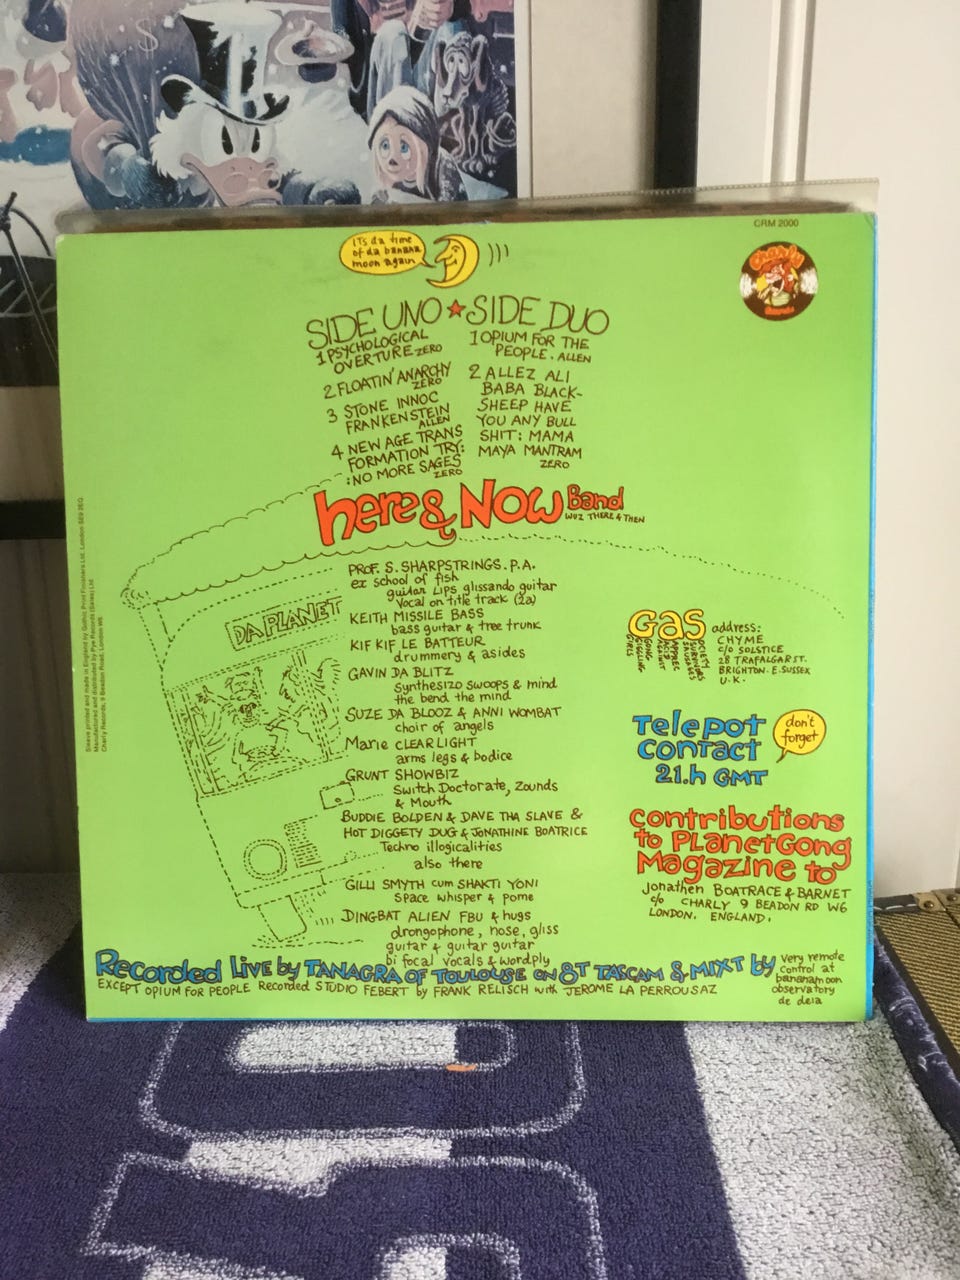 CRM 2000
Charly
Records
ITS da time
of da banana
moon again
SIDE UNO ★ SIDE DUO
1 PSYCHOLOGICAL
OVERTURE ZERO
2 FLOATIN' ANARCHY
ZERO
3 STONE INNOC
FRANKENSTEIN
ALLEN
4 NEW AGE TRANS
FORMATION TRY:
:NO MORE SAGES
ZERO
1 OPIUM FOR THE
PEOPLE. ALLEN
2 ALLEZ ALI
BABA BLACK-
SHEEP HAVE
YOU ANY BULL
SHIT: MAMA
MAYA MANTRAM
ZERO
here & NOW Band
WUZ THERE & THEN
DA PLANET
PROF. S. SHARPSTRINGS. P.A.
ex school of fish
guitar LIPS glissando guitar
Vocal on title track (2a)
KEITH MISSILE BASS
bass guitar & tree trunk
KIF KIF LE BATTEUR
drummery & asides
GAVIN DA BLITZ
Synthesizo swoops & mind
the bend the mind
SUZE DA BLOOZ & ANNI WOMBAT
choir of angels
Marie CLEARLIGHT
arms legs & bodice
GRUNT SHOWBIZ
Switch Doctorate, Zounds
& Mouth
BUDDIE BOLDEN & DAVE THA SLAVE &
HOT DIGGETY DUG & JONATHINE BOATRICE
Techno illogicalities
also there
GILLI SMYTH cum SHAKTI YONI
Space whisper & pome
DINGBAT ALIEN FBU & hugs
drongophone, nose, gliss
guitar & guitar guitar
bi focal vocals & wordply
Gas address:
CHYME
c/o SOLSTICE
28 TRAFALGAR ST.
BRIGHTON. E. SUSSEX
U.K.
GIGGLING
GIRLS
GONG
AGAINST
ACID
SOCIETY
Telepot
contact
21.h GMT
don't
forget
contributions
to PLANETGong
Magazine to
Jonathen BOATRACE & BARNET
c/o CHARLY 9 BEADON RD W6
LONDON. ENGLAND.
Recorded Live by TANAGRA OF TOULOUSE ON 8T TASCAM & MIXT by
very remote
control at
bananamoon
observatory
de deia
EXCEPT OPIUM FOR PEOPLE Recorded STUDIO FEBERT by FRANK RELISCH with JEROME LA PERROUSAZ
Sleeve printed and made in England by Gothic Print Finishers Ltd. London SE9 2EG.
Manufactured and distributed by Pye Records (Sales) Ltd
Charly Records, 9 Beadon Road, London W6